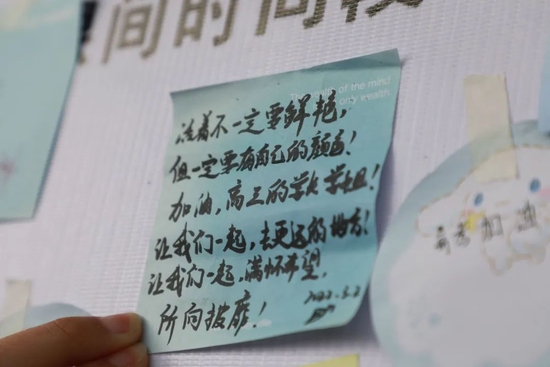 间时间段
The wealth of the mind
only wealth
活着不一定要鲜艳，
但一定要有自己的颜色！
加油，高三的学长学姐！
让我们一起，去更远的地方！
让我们一起，满怀希望，
所向披靡！
2022.5.2
高考加油